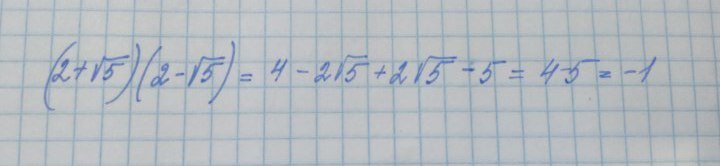 (2+√5)(2-√5) = 4 - 2√5 + 2√5 - 5 = 4-5 = -1